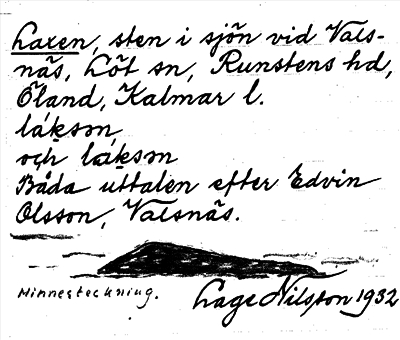 Laxen, sten i sjön vid Vals-
näs, Löt sn, Runstens hd,
Öland, Kalmar l.
láksən
och làksən
Båda uttalen efter Edvin
Olsson, Valsnäs.
Minnesteckning. Lage Nilsson 1932